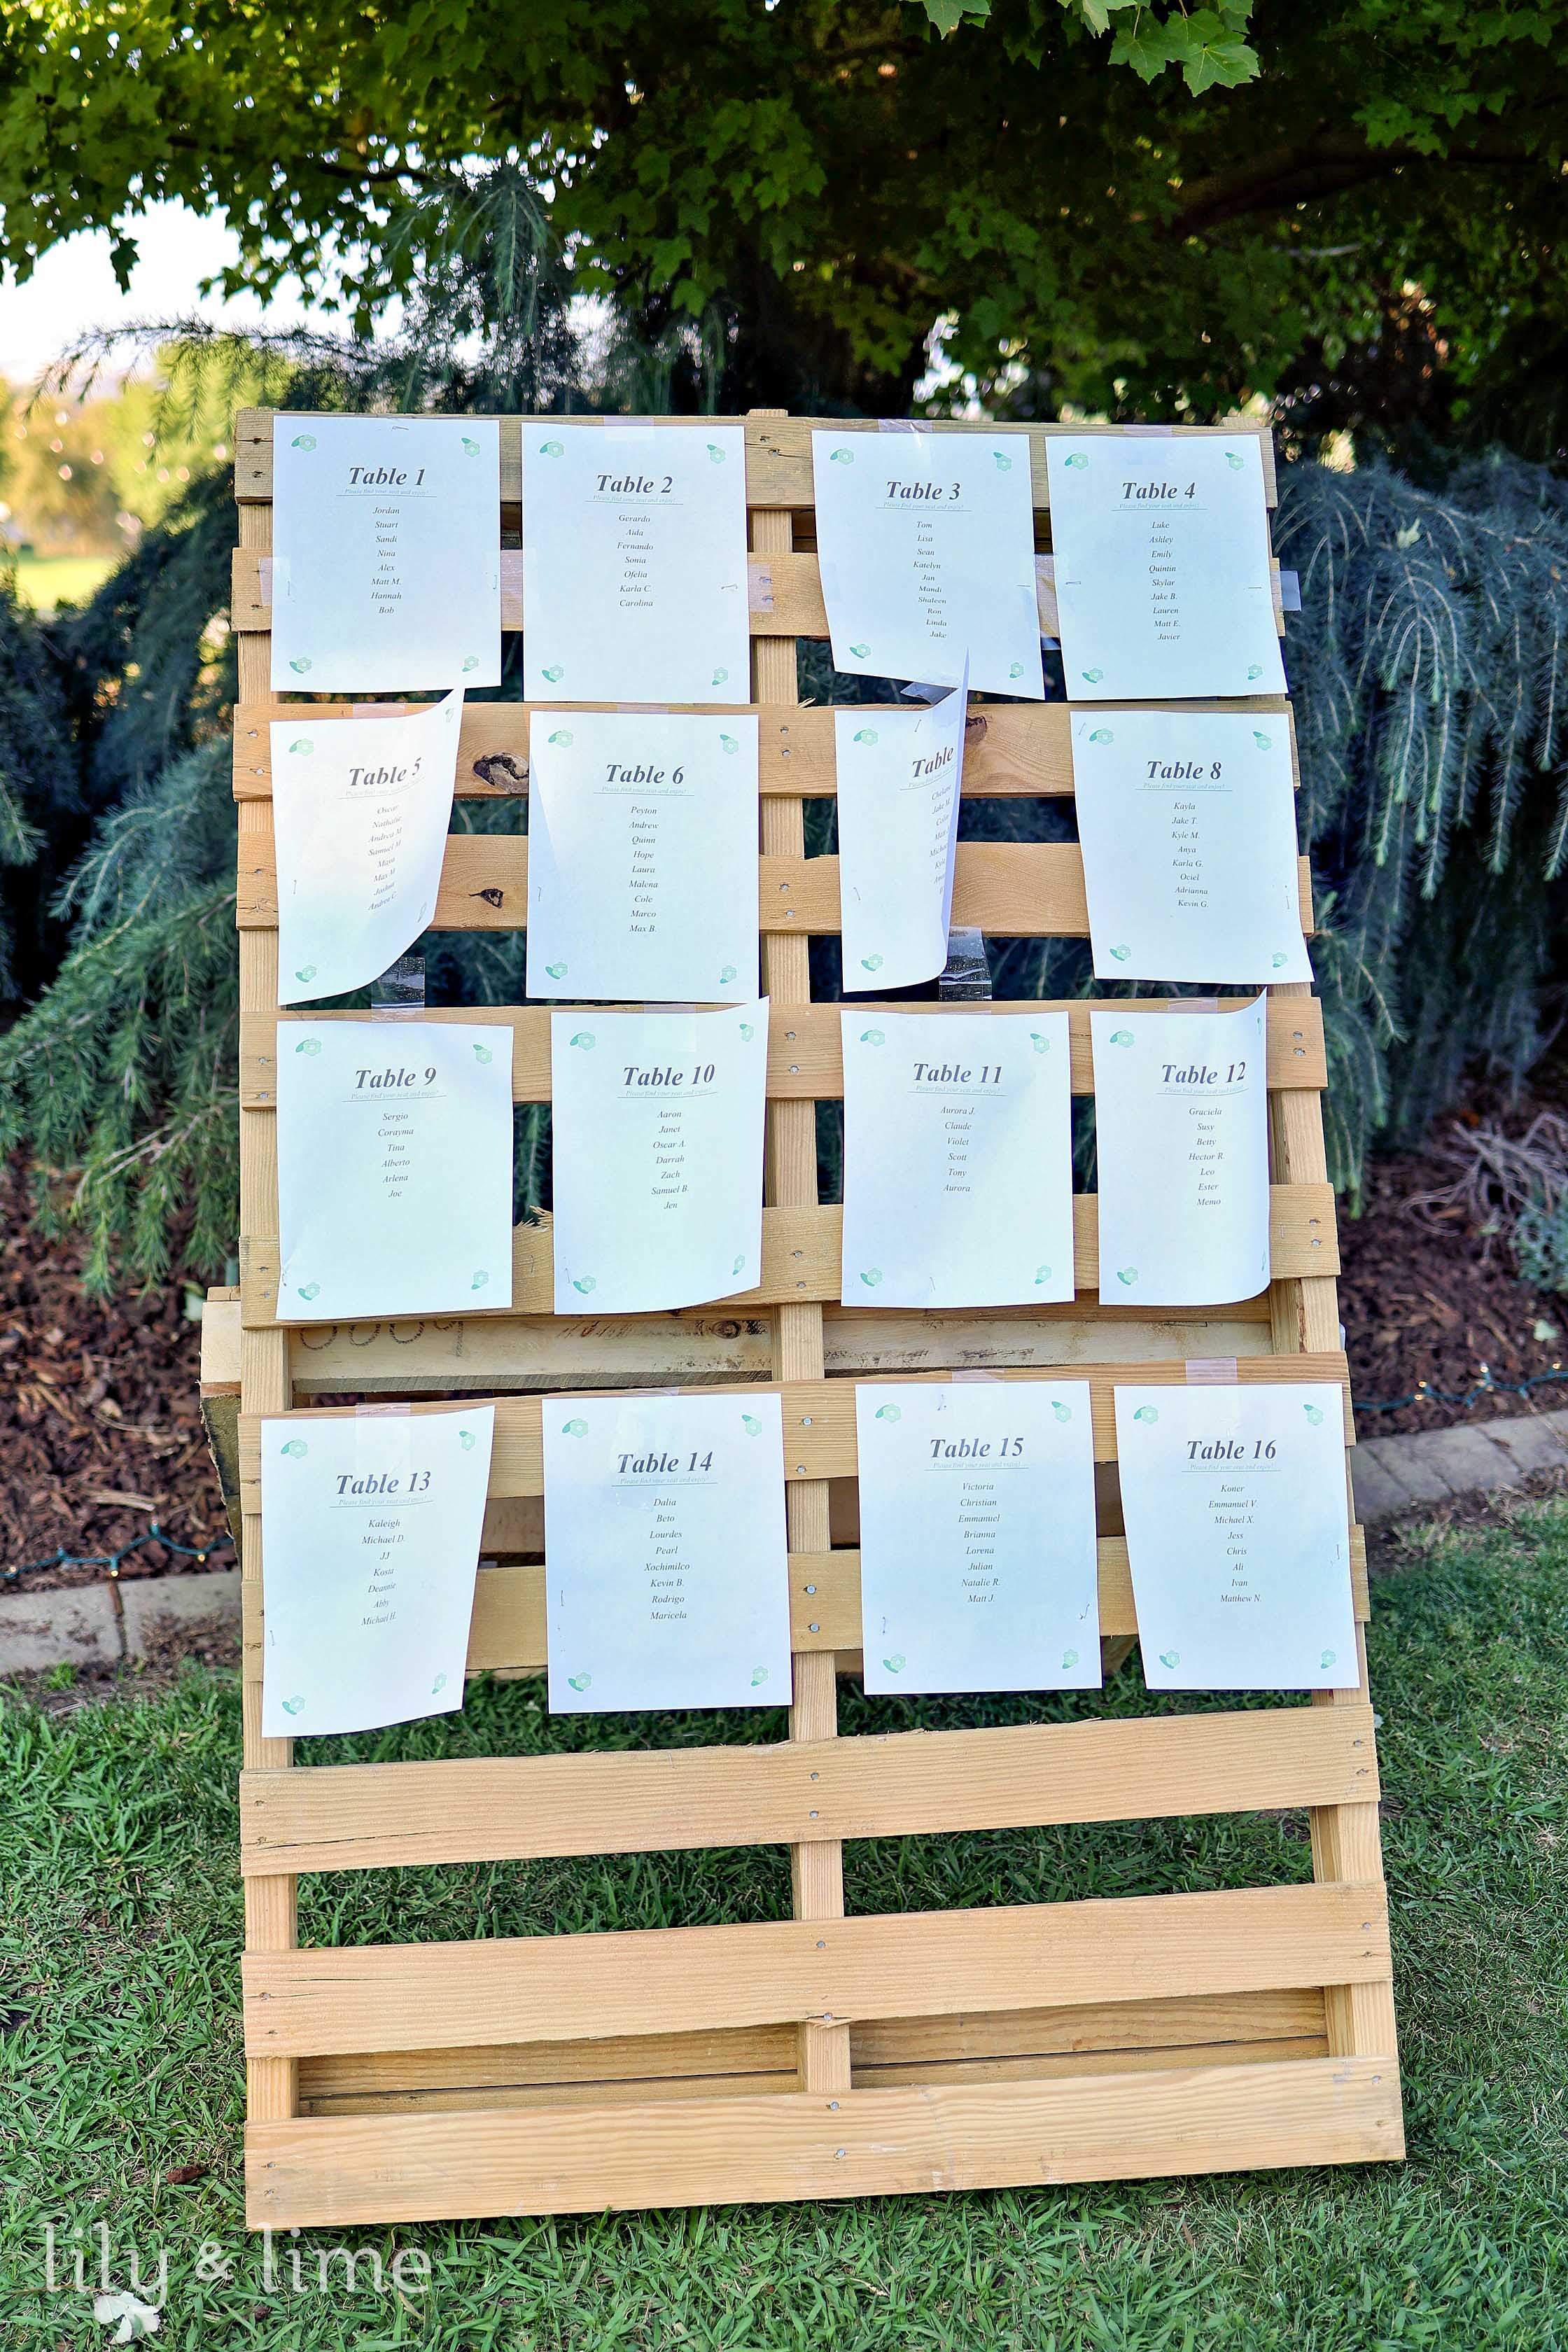 Table 1
Please find your seat and enjoy!
Jordan
Stuart
Sandi
Nina
Alex
Matt M.
Hannah
Bob
Table 2
Please find your seat and enjoy!
Gerardo
Aida
Fernando
Sonia
Ofelia
Karla C.
Carolina
Table 3
Please find your seat and enjoy!
Tom
Lisa
Sean
Katelyn
Jan
Mandi
Shaleen
Ron
Linda
Jake
Table 4
Please find your seat and enjoy!
Luke
Ashley
Emily
Quintin
Skylar
Jake B.
Lauren
Matt E.
Javier
Table 5
Please find your seat and enjoy!
Oscar
Nathalie
Andrea M.
Samuel M.
Maya
Max M.
Joshua
Andrea C.
Table 6
Please find your seat and enjoy!
Peyton
Andrew
Quinn
Hope
Laura
Malena
Cole
Marco
Max B.
Table
Jake M.
Table 8
Please find your seat and enjoy!
Kayla
Jake T.
Kyle M.
Anya
Karla G.
Ociel
Adrianna
Kevin G.
Table 9
Please find your seat and enjoy!
Sergio
Corayma
Tina
Alberto
Arlena
Joe
Table 10
Please find your seat and enjoy!
Aaron
Janet
Oscar A.
Darrah
Zach
Samuel B.
Jen
Table 11
Please find your seat and enjoy!
Aurora J.
Claude
Violet
Scott
Tony
Aurora
Table 12
Please find your seat and enjoy!
Graciela
Susy
Betty
Hector R.
Leo
Ester
Memo
Table 13
Please find your seat and enjoy!
Kaleigh
Michael D.
JJ
Kosta
Deannie
Abby
Michael H.
Table 14
Please find your seat and enjoy!
Dalia
Beto
Lourdes
Pearl
Xochimilco
Kevin B.
Rodrigo
Maricela
Table 15
Please find your seat and enjoy!
Victoria
Christian
Emmanuel
Brianna
Lorena
Julian
Natalie R.
Matt J.
Table 16
Please find your seat and enjoy!
Koner
Emmanuel V.
Michael X.
Jess
Chris
Ali
Ivan
Matthew N.
lily & lime